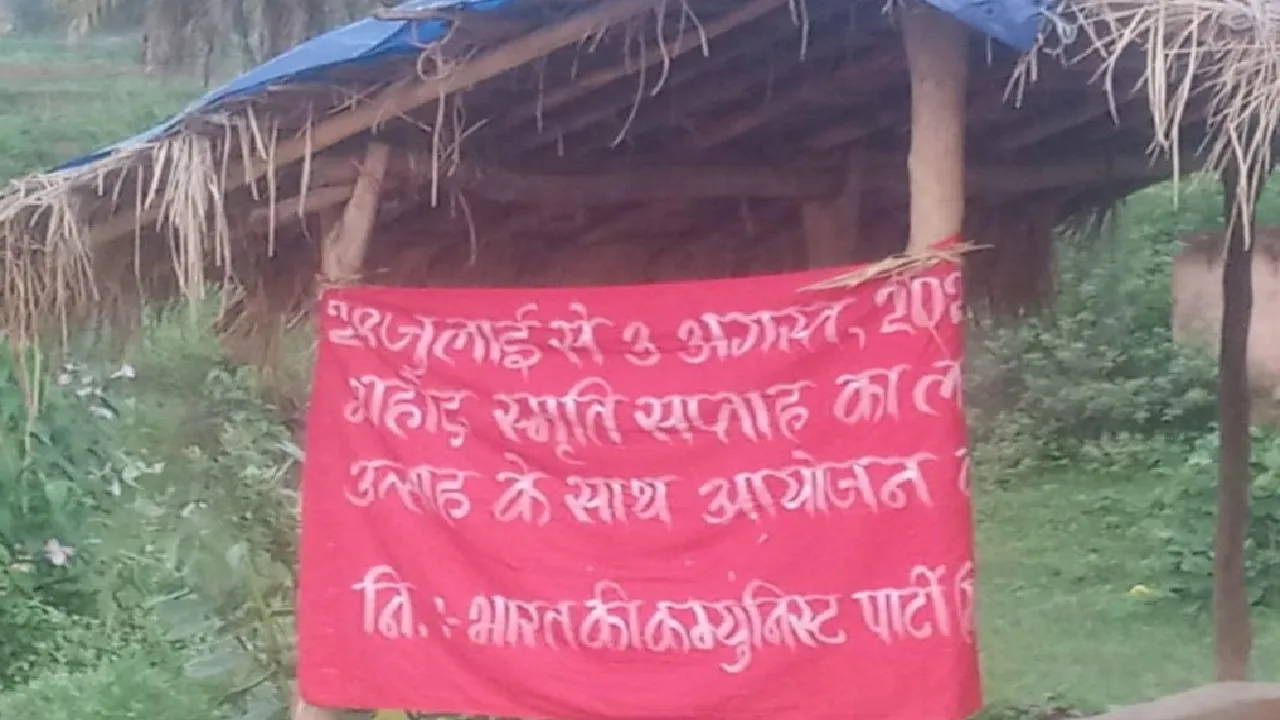 28 जुलाई से 3 अगस्त, 202
शहीद स्मृति सप्ताह का
उत्साह के साथ आयोजन
नि. :- भारत की कम्युनिस्ट पार्टी (